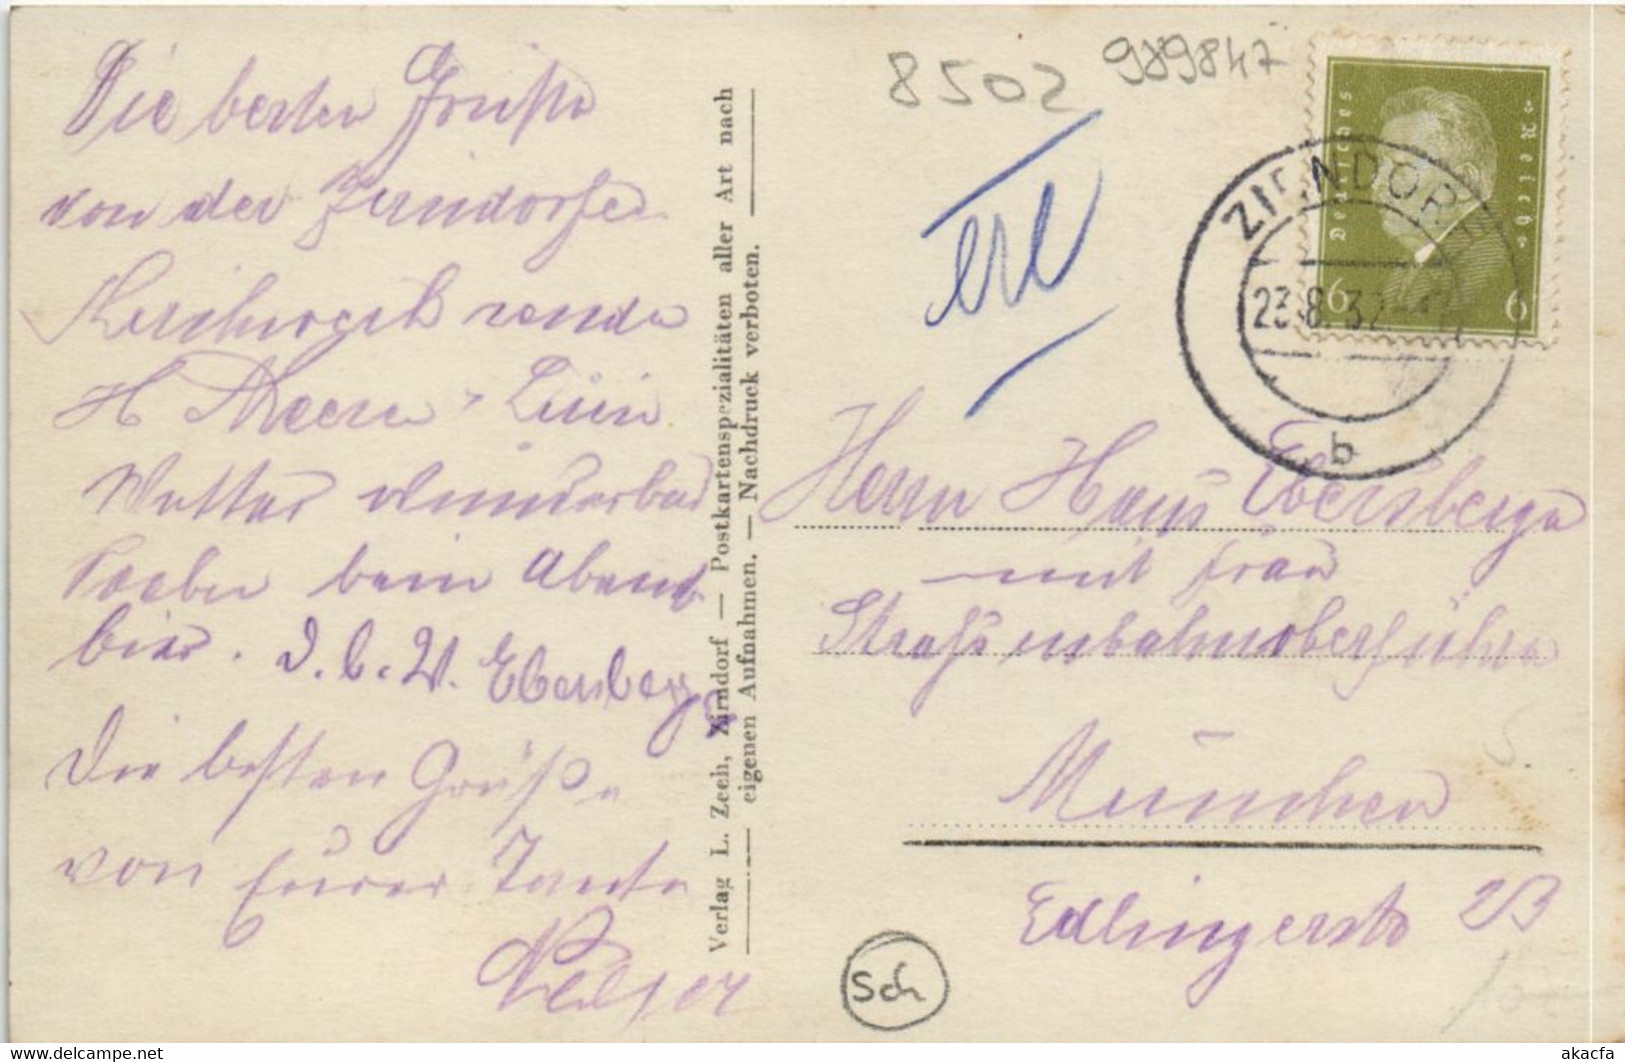 Die besten Grüße
von der Zirndorfer
Kirchweih sende
H
Wetter wunderbar
beim Abend
bier. J. b. W. Ebersberge
Die besten Grüße
von Eurer Tante
Verlag L. Zeeh, Zirndorf — Postkartenspezialitäten aller Art nach
eigenen Aufnahmen. — Nachdruck verboten.
8502 989847
Deutsches Reich
6 6
ZIRNDORF
23.8.32
b
Herrn Hans Ebersberger
mit Frau
Straßenbahnoberführer
München
Edlingerstr 23
Sch
akacfa